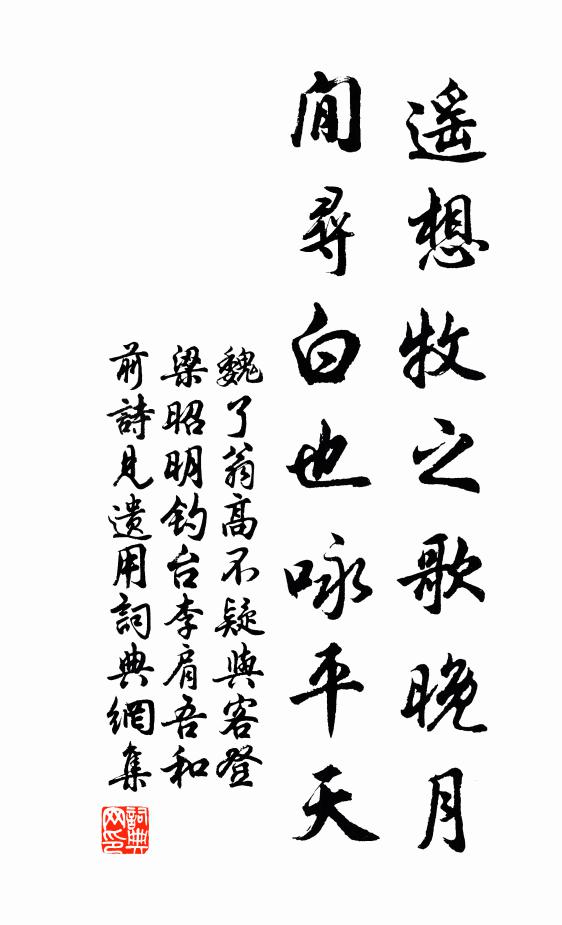 遥想牧之歌晚月
閒尋白也咏平天
魏了翁高不疑與客登
梁昭明釣台李肩吾和
前詩見遺用詞典網集
詞典
网印